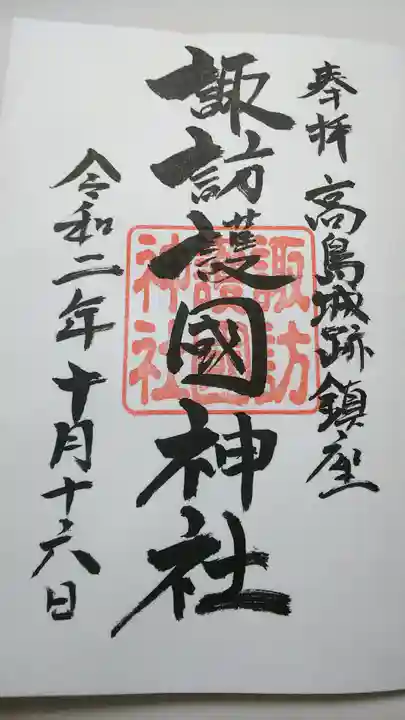 奉拝 高島城跡鎮座
諏訪護國神社
諏訪
護國
神社
令和二年十月十六日